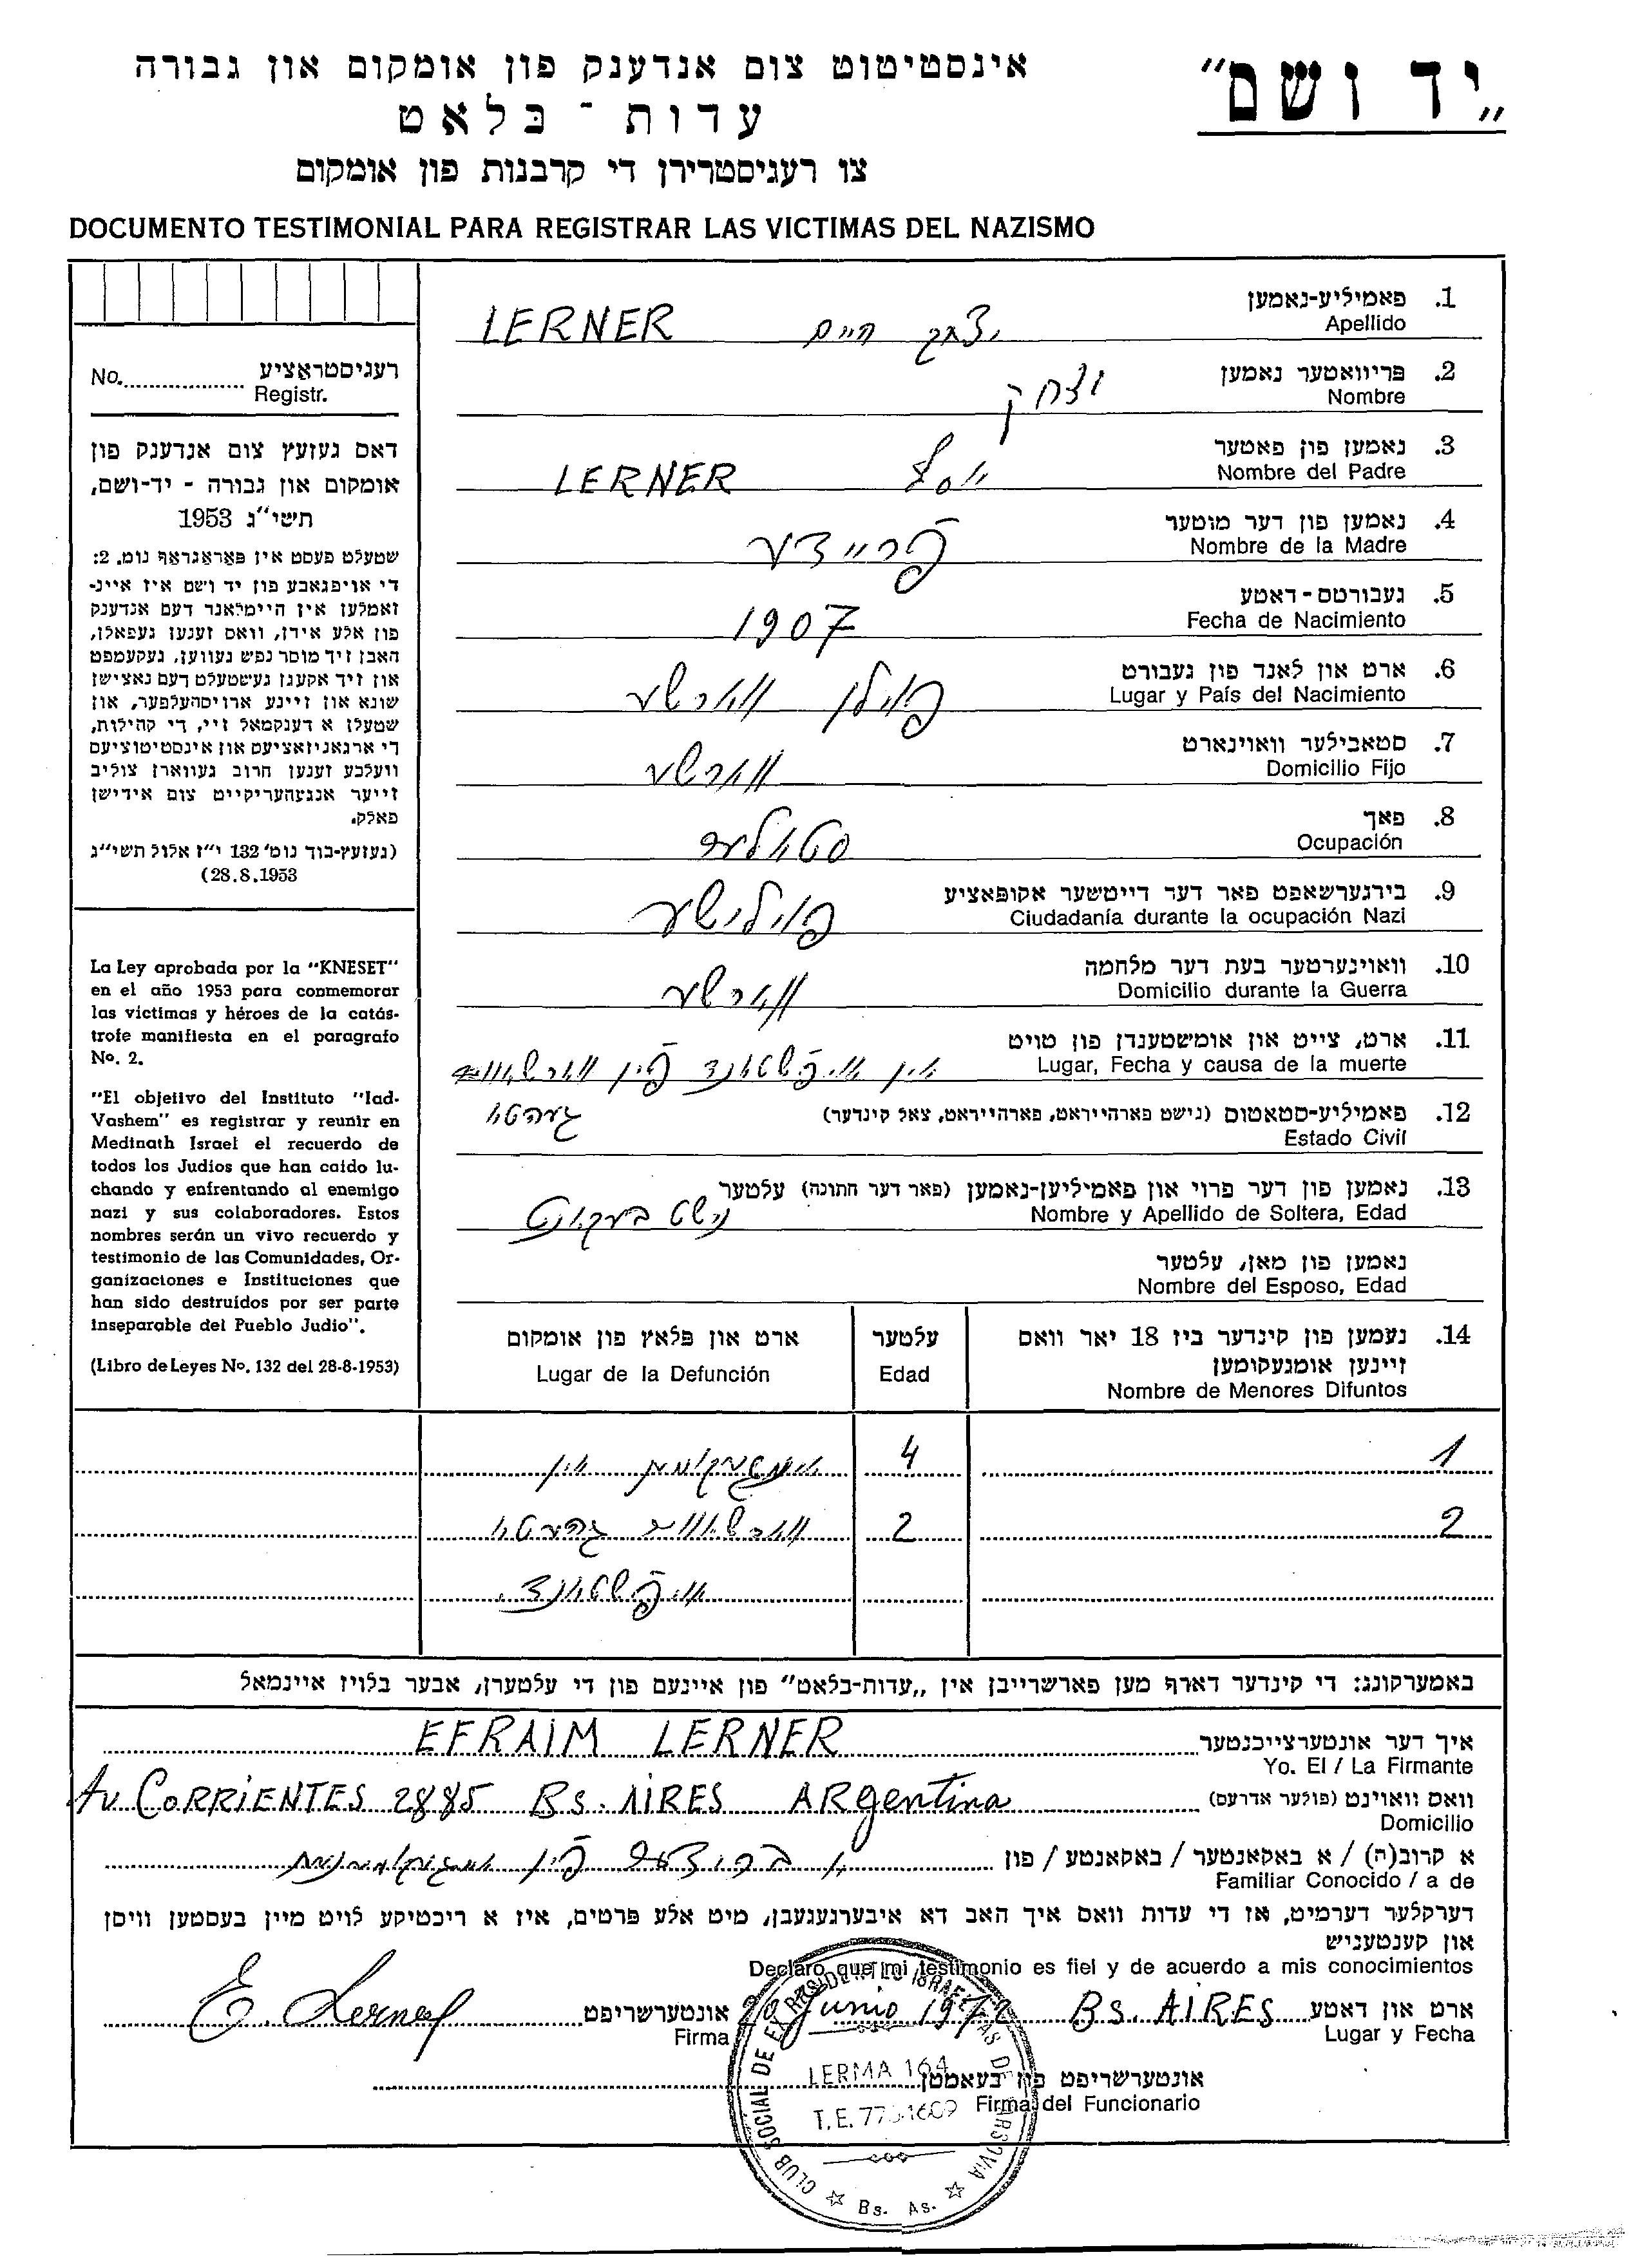 „יד ושם"
אינסטיטוט צום אנדענק פון אומקום און גבורה
עדות - בלאט
צו רעגיסטרירן די קרבנות פון אומקום
DOCUMENTO TESTIMONIAL PARA REGISTRAR LAS VICTIMAS DEL NAZISMO
רעגיסטראציע
No. Registr.
דאס געזעץ צום אנדענק פון
אומקום און גבורה - יד-ושם,
תשי"ג 1953
שטעלט פעסט אין פאראגראף נומ. 2:
די אויפגאבע פון יד ושם איז איינ-
זאמלען אין היימלאנד דעם אנדענק
פון אלע אידן, וואס זענען געפאלן,
האבן זיך מוסר נפש געווען, געקעמפט
און זיך אקעגן געשטעלט דעם נאצישן
שונא און זיינע ארויסהעלפער, און
שטעלן א דענקמאל זיי, די קהילות,
די ארגאניזאציעס און אינסטיטוציעס
וועלכע זענען חרוב געווארן צוליב
זייער אנגעהעריקייט צום אידישן
פאלק.
(געזעץ-בוך נומ' 132 י"ז אלול תשי"ג
28.8.1953)
La Ley aprobada por la "KNESET"
en el año 1953 para conmemorar
las victimas y héroes de la catás-
trofe manifiesta en el paragrafo
No. 2.
"El objetivo del Instituto "Iad-
Vashem" es registrar y reunir en
Medinath Israel el recuerdo de
todos los Judios que han caido lu-
chando y enfrentando al enemigo
nazi y sus colaboradores. Estos
nombres serán un vivo recuerdo y
testimonio de las Comunidades, Or-
ganizaciones e Instituciones que
han sido destruídos por ser parte
inseparable del Pueblo Judio".
(Libro de Leyes No. 132 del 28-8-1953)
1. פאמיליע-נאמען
Apellido
יצחק חיים LERNER
2. פריוואטער נאמען
Nombre
יצחק
3. נאמען פון פאטער
Nombre del Padre
יוסף LERNER
4. נאמען פון דער מוטער
Nombre de la Madre
פריידע
5. געבורטס-דאטע
Fecha de Nacimiento
1907
6. ארט און לאנד פון געבורט
Lugar y País del Nacimiento
פוילן ווארשע
7. סטאבילער וואוינארט
Domicilio Fijo
ווארשע
8. פאך
Ocupación
סטאליער
9. בירגערשאפט פאר דער דייטשער אקופאציע
Ciudadanía durante la ocupación Nazi
פוילישע
10. וואוינערטער בעת דער מלחמה
Domicilio durante la Guerra
ווארשע
11. ארט, צייט און אומשטענדן פון טויט
Lugar, Fecha y causa de la muerte
אין אויפשטאנד פון ווארשווער
12. פאמיליע-סטאטוס (נישט פארהייראט, פארהייראט, צאל קינדער)
Estado Civil
געהטא
13. נאמען פון דער פרוי און פאמיליען-נאמען (פאר דער חתונה) עלטער
Nombre y Apellido de Soltera, Edad
נישט באקאנט
נאמען פון מאן, עלטער
Nombre del Esposo, Edad
14. נעמען פון קינדער ביז 18 יאר וואס
זיינען אומגעקומען
Nombre de Menores Difuntos
עלטער
Edad
ארט און פלאץ פון אומקום
Lugar de la Defunción
1 4 אומגעקומען אין
2 2 ווארשווער געהטא
אויפשטאנד.
באמערקונג: די קינדער דארף מען פארשרייבן אין „עדות-בלאט" פון איינעם פון די עלטערן, אבער בלויז איינמאל
איך דער אונטערצייכנטער EFRAIM LERNER
Yo. El / La Firmante
וואס וואוינט (פולער אדרעס) Av CORRIENTES 2885 Bs. AIRES ARgentina
Domicilio
א קרוב(ה) / א באקאנטער / באקאנטע / פון א ברודער פון אומגעקומענעם
Familiar Conocido / a de
דערקלער דערמיט, אז די עדות וואס איך האב דא איבערגעגעבן, מיט אלע פרטים, איז א ריכטיקע לויט מיין בעסטען וויסן
און קענטעניש
Declaro que mi testimonio es fiel y de acuerdo a mis conocimientos
ארט און דאטע Bs. AIRES Junio 1972 אונטערשריפט E. Lerner
Lugar y Fecha Firma
אונטערשריפט פון בעאמטן
Firma del Funcionario
CLUB SOCIAL DE EX RESIDENTES ISRAELITAS DE VARSOVIA
LERMA 164
T.E.
Bs. As.